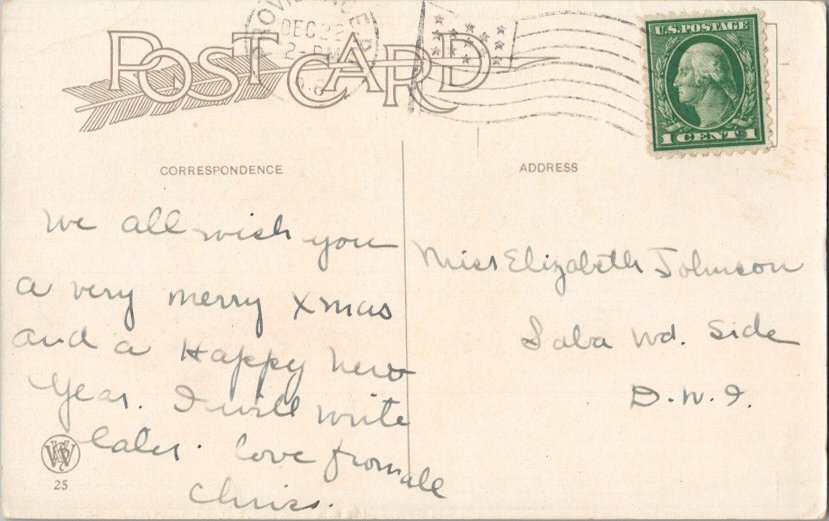 PROVIDENCE R.
DEC 22
2-PM
POST CARD
U.S. POSTAGE
1 CENT 1
CORRESPONDENCE
ADDRESS
We all wish you
a very merry Xmas
and a Happy New
Year. I will write
later. love from all
Chriss.
Miss Elizabeth Johnson
Saba Wd. Side
D.W.I.
25